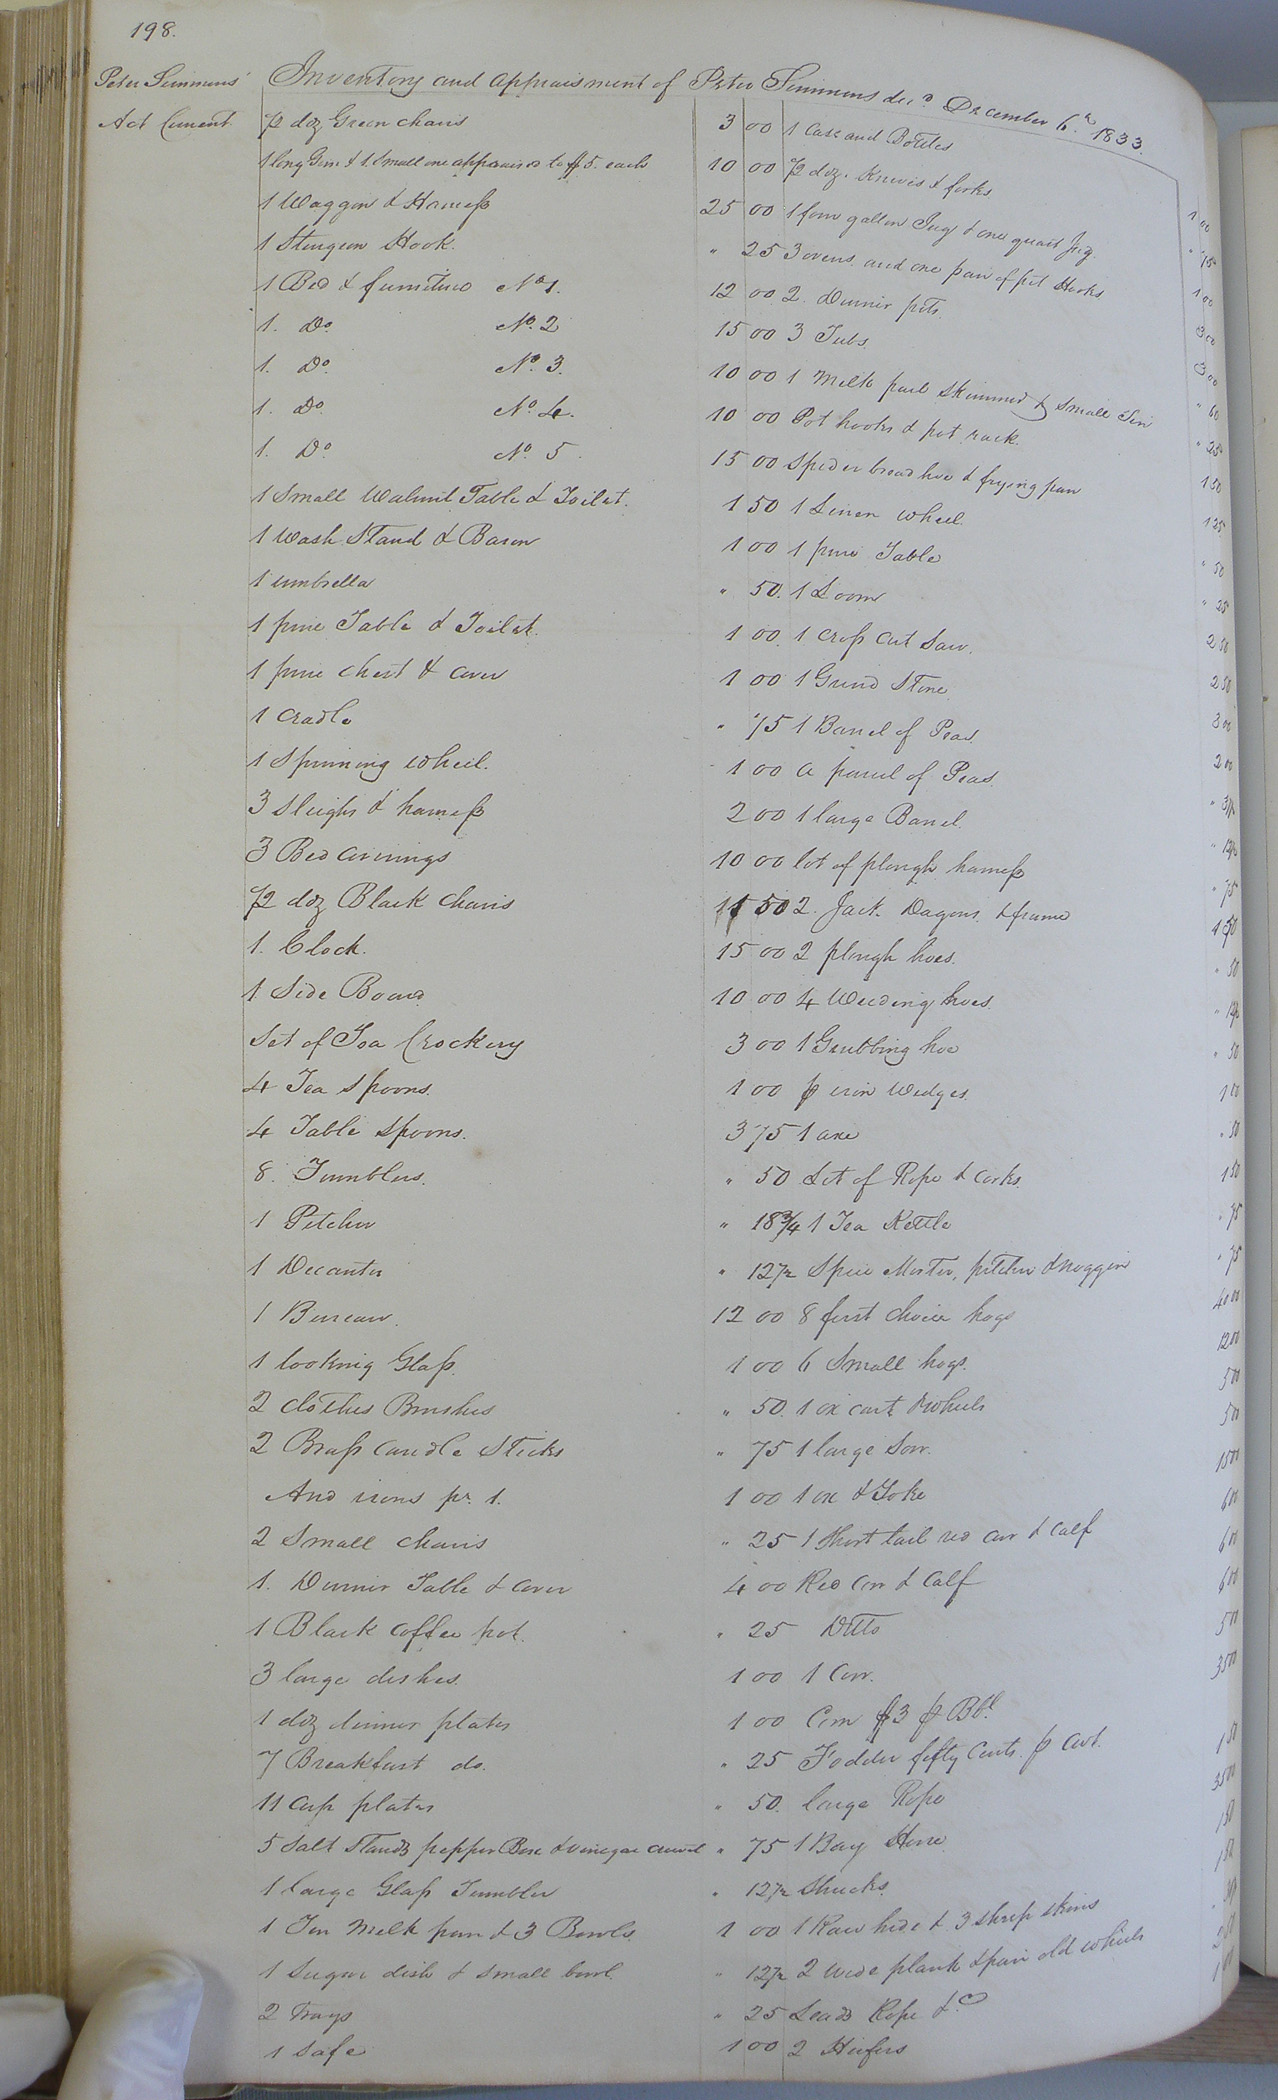 198.
Peter Simmons'
Act Current
Inventory and appraisment of Peter Simmons decd. December 6th. 1833.
1/2 doz Green chairs 3 00
1 long Gun & 1 Small one appraised to $5. each 10 00
1 Waggon & Harness 25 00
1 Sturgeon Hook. " 25
1 Bed & furniture No 1. 12 00
1. Do. No. 2 15 00
1. Do. No. 3. 10 00
1. Do. No 4. 10 00
1. Do. No. 5. 15 00
1 Small Walnut Table & Toilet. 1 50
1 Wash Stand & Bason 1 00
1 umbrella " 50.
1 pine Table & Toilet. 1 00
1 pine Chest & cover 1 00
1 Cradle " 75
1 Spinning wheel. 1 00
3 Sleighs & harness 2 00
3 Bed coverings 10 00
1/2 doz Black chairs 1 50
1. Clock. 15 00
1 Side Board 10 00
Set of Tea Crockery 3 00
4 Tea Spoons. 1 00
4 Table Spoons. 3 75
8. Tumblers. " 50
1 Pitcher " 18 3/4
1 Decanter " 12 1/2
1 Bureau. 12 00
1 looking Glass. 1 00
2 clothes Brushes " 50.
2 Brass Candle Sticks " 75
And irons pr. 1. 1 00
2 Small chairs " 25
1. Dinner Table & cover 4 00
1 Black coffee pot. " 25
3 large dishes. 1 00
1 doz dinner plates 1 00
7 Breakfast do. " 25
11 Cup plates " 50.
5 Salt Stands pepper Box & vinegar cruet " 75
1 large Glass Tumbler " 12 1/2
1 Tin Milk pan & 3 Bowls 1 00
1 Sugar dish & Small bowl " 12 1/2
2 Trays " 25
1 Safe 1 00
1 Case and Bottles 1 00
1/2 doz. Knives & forks " 75
1 four gallon Jug & one quart Jug. 1 00
3 ovens and one pair of pot Hooks 3 00
2 Dinner pots. 3 00
3 Tubs. " 60
1 Milk pail Skimmer & Small Tin " 25
Pot hooks & pot rack. 1 50
Spider bread hoe & frying pan 1 25
1 Linen wheel. " 50
1 pine Table " 25
1 Loom 2 50
1 Cross Cut Saw. 2 50
1 Grind Stone 3 00
1 Barrel of Peas. 2 00
a parcel of Peas.
1 large Barrel.
lot of plough harness " 75
2. Jack Dagons, & frame 1 50
2 plough hoes. " 50
4 Weeding hoes
1 Grubbing hoe " 50
p iron Wedges. 1 00
1 axe " 50
Lot of Rope & Corks. 1 50
1 Tea Kettle " 75
Spice Morter, pitcher & noggin " 75
8 first choice hogs 40 00
6 Small hogs. 12 00
1 ox cart & wheels 5 00
1 large Sow. 5 00
1 ox & Yoke 15 00
1 Short tail red cow & calf 6 00
Red Cow & Calf 6 00
Ditto 6 00
1 Cow. 5 00
Corn $3 p Bbl. 35 00
Fodder fifty Cents. p Cwt.
large Rope 1 50
1 Bay Horse 35 00
Shucks. 1 50
1 Raw hide & 3 sheep skins
2 wide plank & pair old wheels
Leads Rope &c
2 Heifers